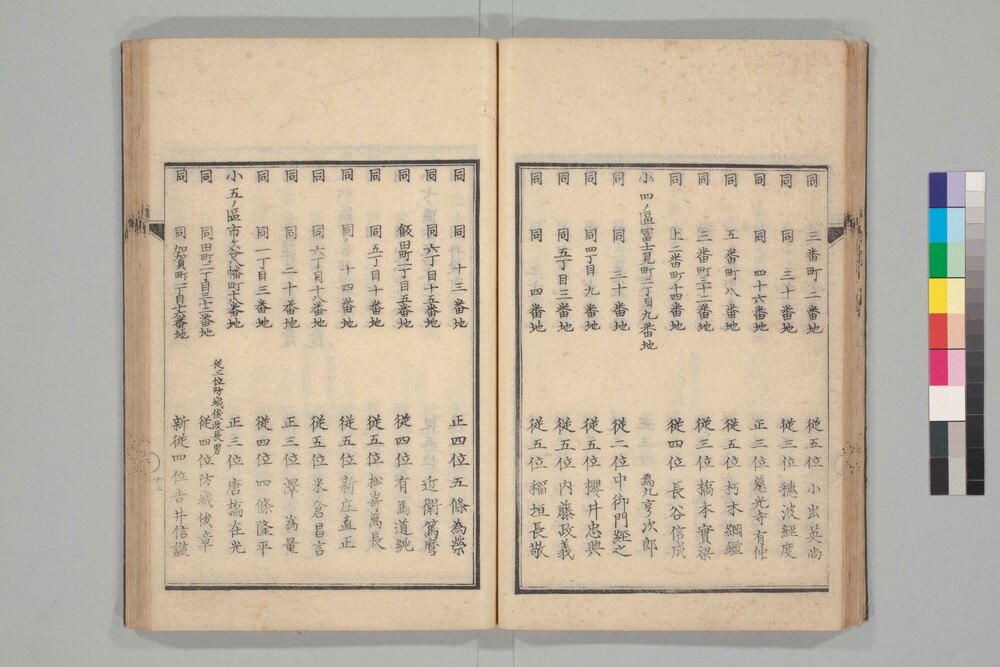 同 三番町二番地 従五位 小出英尚
同 同 三十番地 従三位 穂波経度
同 同 四十六番地 正三位 慈光寺有仲
同 五番町八番地 従五位 朽木綱鑑
同 三番町三十二番地 従三位 橋本實梁
同 上二番町十四番地 従四位 長谷信成
小四ノ區冨士見町一丁目九番地 為九亨次郎
同 同 三十番地 従二位 中御門経之
同 同四丁目九番地 従五位 櫻井忠興
同 同五丁目三番地 従五位 内藤政義
同 同 四番地 従五位 稲垣長敬
同 同 十三番地 正四位 五條為榮
同 同六丁目十五番地 近衛篤麿
同 飯田町一丁目五番地 従四位 有馬道純
同 同五丁目十番地 従五位 松寄萬長
同 同 十四番地 従五位 新庄直正
同 同六丁目十八番地 従五位 米倉昌言
同 同 二十番地 正三位 澤為量
同 同一丁目三番地 従四位 四條隆平
小五ノ區市ヶ谷八幡町十八番地 正三位 唐橋在光
同 同田町二丁目三十二番地 従三位防城俊政長男 従四位 防城俊章
同 同加賀町一丁目十六番地 新従四位 吉井信謹
十二